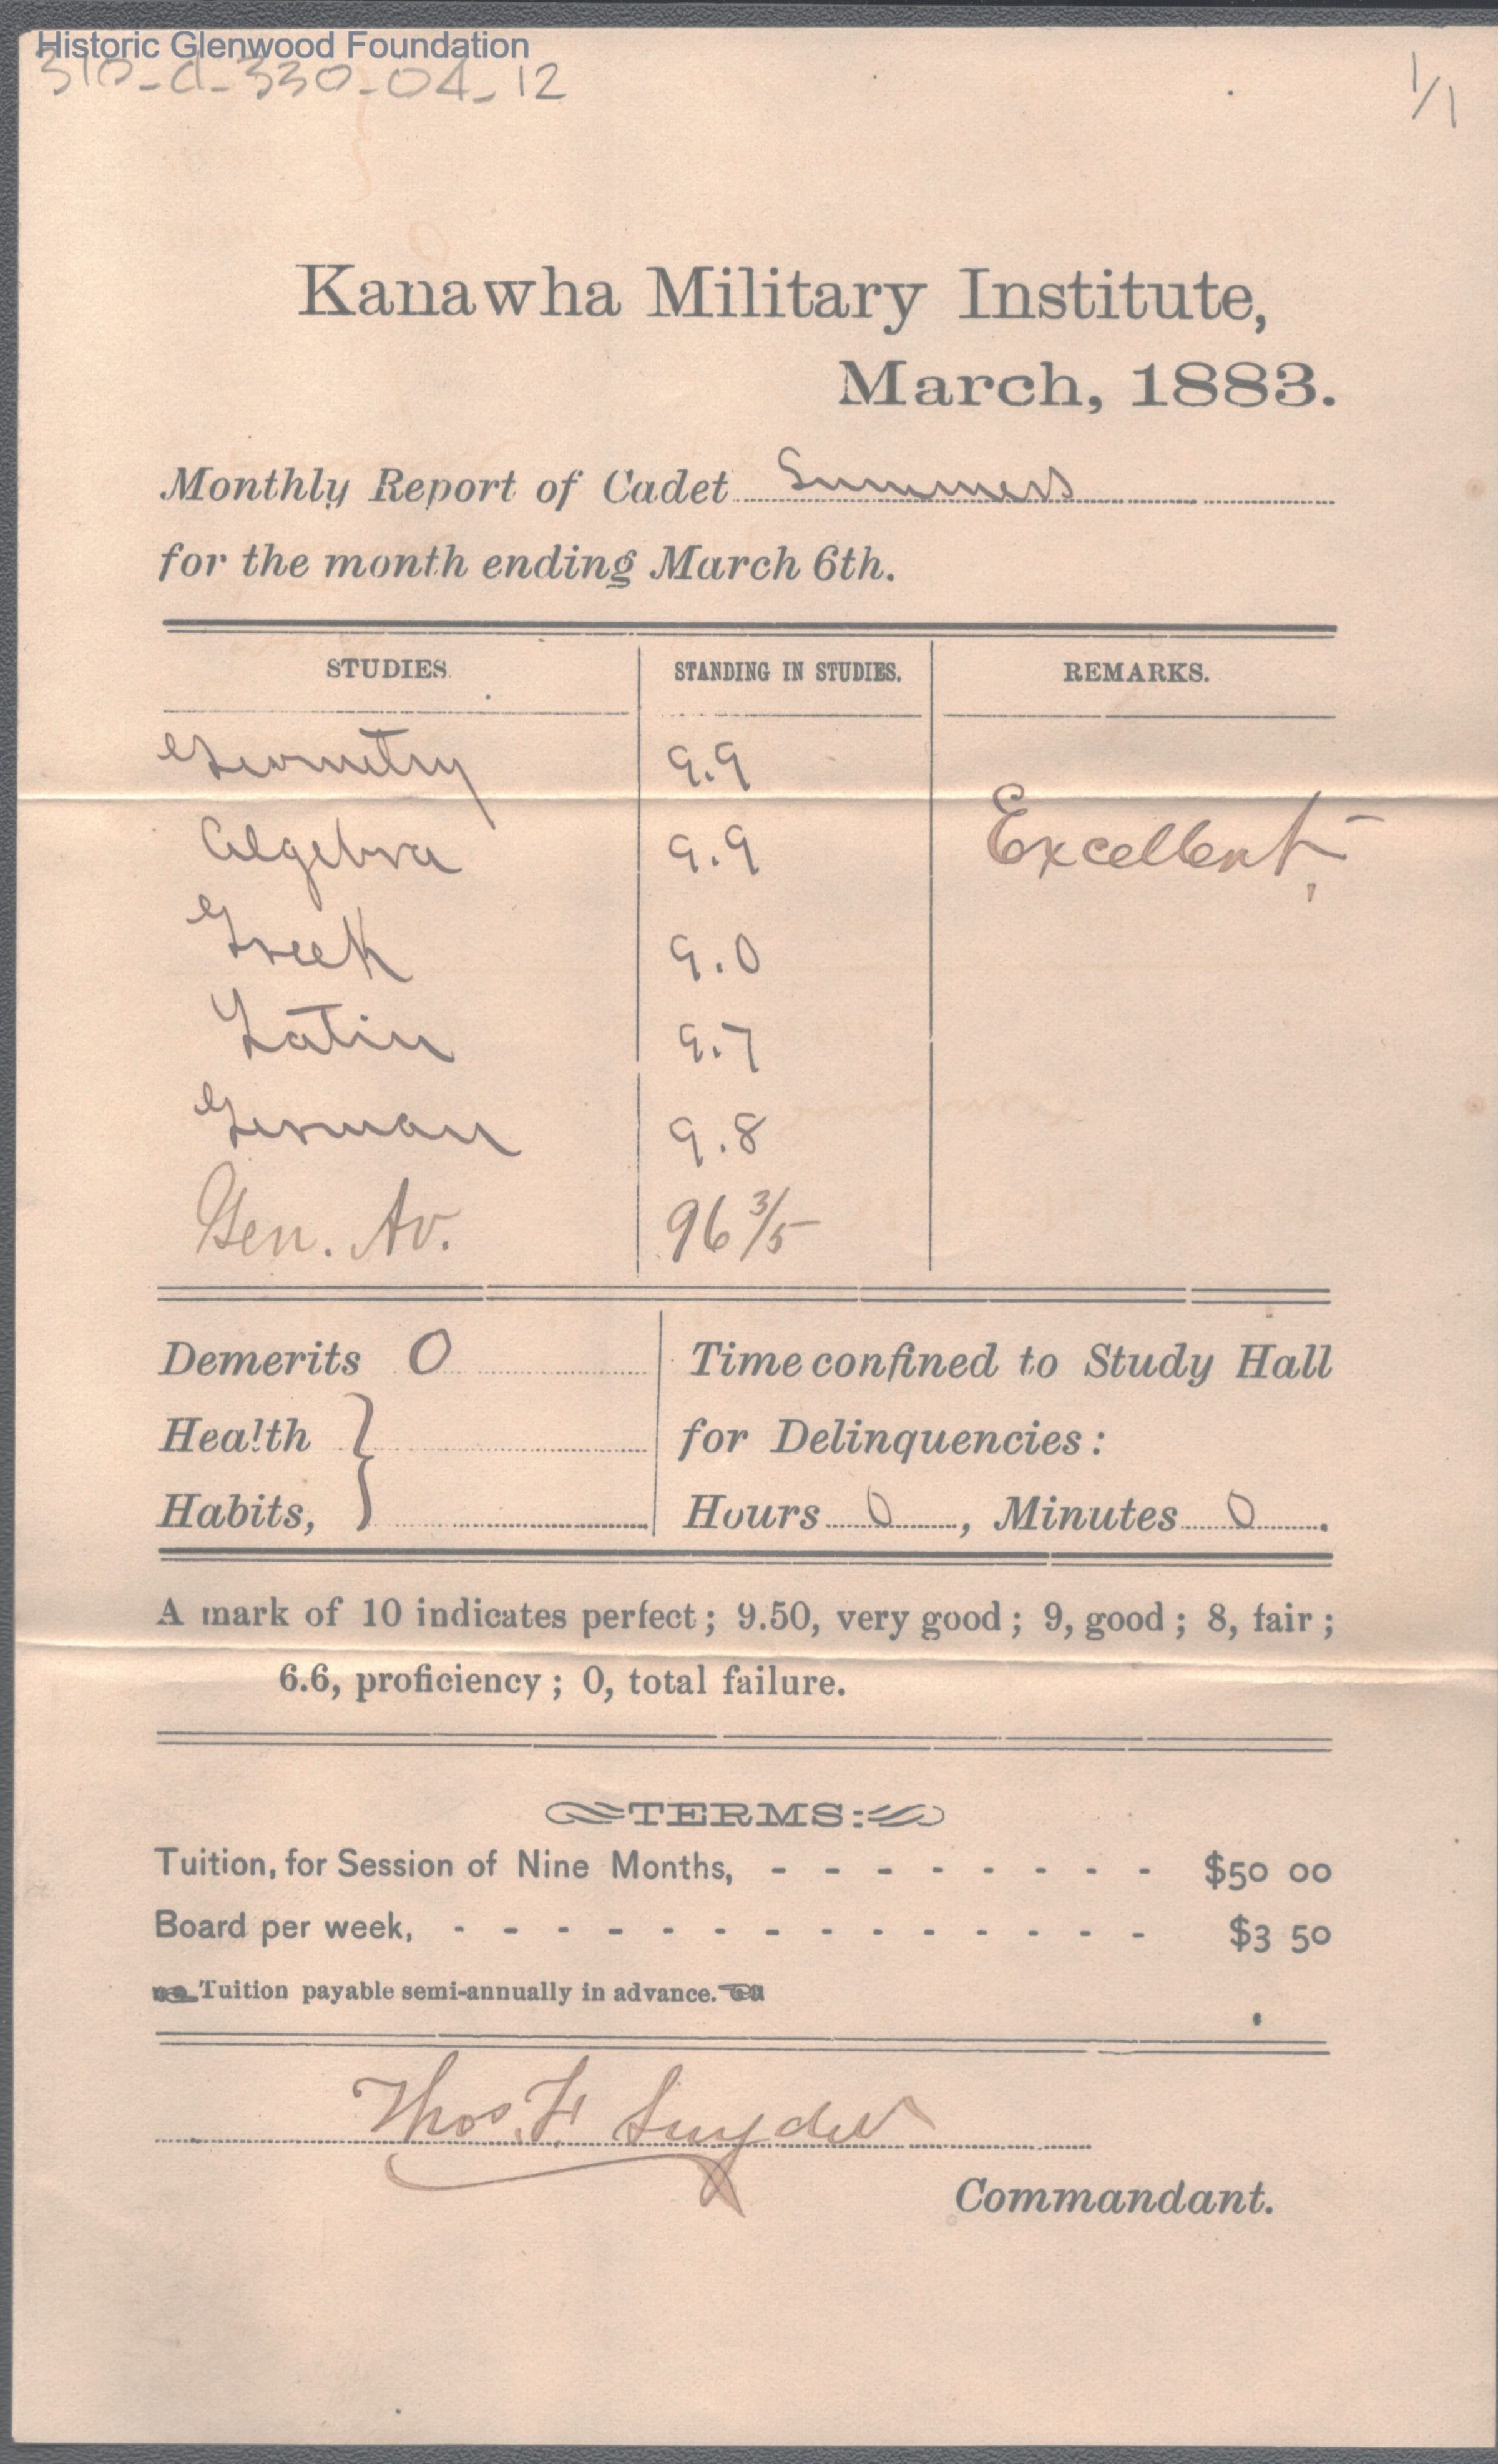 Historic Glenwood Foundation
310-d-330-04-12
1/1
Kanawha Military Institute,
March, 1883.
Monthly Report of Cadet Summers
for the month ending March 6th.
STUDIES. STANDING IN STUDIES. REMARKS.
Geometry 9.9
Algebra 9.9 Excellent,
Greek 9.0
Latin 9.7
German 9.8
Gen. Av. 96 3/5
Demerits 0 Time confined to Study Hall
Health } for Delinquencies:
Habits, Hours 0, Minutes 0.
A mark of 10 indicates perfect; 9.50, very good; 9, good; 8, fair;
6.6, proficiency; 0, total failure.
TERMS:
Tuition, for Session of Nine Months, - - - - - - - - $50 00
Board per week, - - - - - - - - - - - - - - $3 50
Tuition payable semi-annually in advance.
Thos. F. Snyder
Commandant.